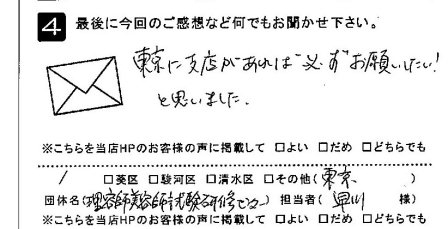 4 最後に今回のご感想など何でもお聞かせ下さい。
東京に支店があれば必ずお願いしたい!
と思いました。
※こちらを当店HPのお客様の声に掲載して □よい □だめ □どちらでも
/ □葵区 □駿河区 □清水区 □その他( 東京 )
団体名(理容師美容師試験研修センター) 担当者( 早川 様)
※こちらを当店HPのお客様の声に掲載して □よい □だめ □どちらでも